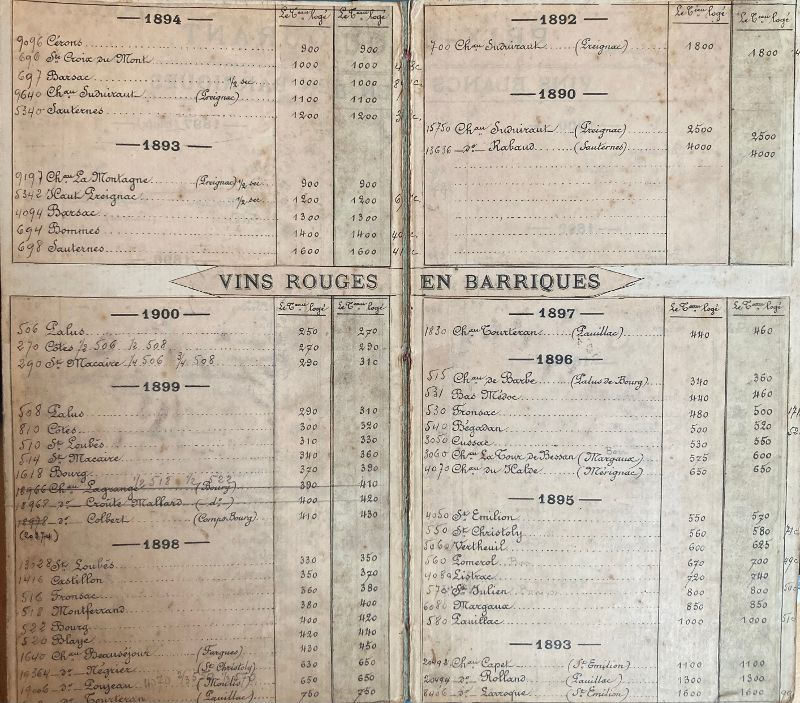 — 1894 —
Le T.eau logé Le T.eau logé
9096 Cérons 900 900
696 Ste Croix du Mont 1000 1000
697 Barsac ½ sec 1000 1000
9640 Chau Suduiraut (Preignac) 1100 1100
5340 Sauternes 1200 1200
— 1893 —
9197 Chau La Montagne (Preignac) ½ sec 900 900
5342 Haut Preignac ½ sec 1200 1200
4094 Barsac 1300 1300
694 Bommes 1400 1400
698 Sauternes 1600 1600
— 1892 —
Le T.eau logé Le T.eau logé
700 Chau Suduiraut (Preignac) 1800 1800
— 1890 —
15750 Chau Suduiraut (Preignac) 2500 2500
13636 do Rabaud (Sauternes) 4000 4000
VINS ROUGES EN BARRIQUES
— 1900 —
Le T.eau logé Le T.eau logé
506 Palus 250 270
270 Côtes ½ 506 ½ 508 270 290
290 St Macaire ¼ 506 ¾ 508 290 310
— 1899 —
508 Palus 290 310
810 Côtes 300 320
510 St Loubès 310 330
514 St Macaire 340 360
1618 Bourg 370 390
18966 Chau Lagrange ½ 518 ½ 522 (Bourg) 390 410
18968 do Croûte Mallard (do) 400 420
do Colbert (Comps Bourg) 410 430
(20274)
— 1898 —
13028 St Loubès 330 350
1416 Castillon 350 370
516 Fronsac 360 380
518 Montferrand 380 400
522 Bourg 400 420
520 Blaye 420 440
1640 Chau Beauséjour (Fargues) 430 450
19364 do Négrier (St Christoly) 630 650
19006 do Poujeau (Moulis) 650 650
do Tourteran (Pauillac) 750 750
— 1897 —
Le T.eau logé Le T.eau logé
1830 Chau Tourteran (Pauillac) 440 460
— 1896 —
515 Chau de Barbe (Palus de Bourg) 340 360
531 Bas Médoc 440 460
530 Fronsac 480 500
540 Bégadan 500 520
3050 Cussac 530 550
3060 Chau La Tour de Bessan (Margaux) 575 600
4070 Chau du Halde (Mérignac) 650 650
— 1895 —
4050 St Emilion 550 570
550 St Christoly 560 580
5060 Vertheuil 600 625
560 Pomerol 670 700
4080 Listrac 720 740
570 St Julien 800 800
6080 Margaux 850 850
580 Pauillac 1000 1000
— 1893 —
20498 Chau Capet (St Emilion) 1100 1100
20494 do Rolland (Pauillac) 1300 1300
8406 do Larroque (St Emilion) 1600 1600